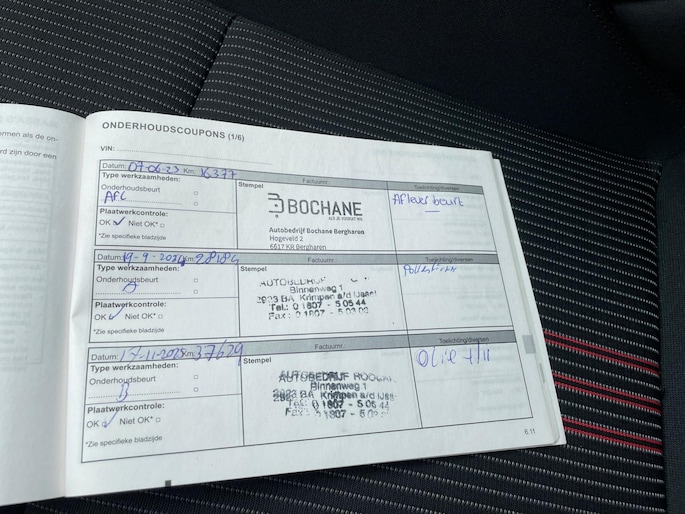 ormen als de on-
rd zijn door een
ONDERHOUDSCOUPONS (1/6)
VIN:
Datum: 07-06-23 Km: 16377 Factuurnr.: Toelichting/diversen
Type werkzaamheden:
Onderhoudsbeurt
AFL
Plaatwerkcontrole:
OK Niet OK*
*Zie specifieke bladzijde
Stempel
BOCHANE
ALS JE VOORUIT WIL
Autobedrijf Bochane Bergharen
Hogeveld 2
6617 KR Bergharen
Afleverbeurt
Datum: 19-9-2024 Km: 28184 Factuurnr.: Toelichting/diversen
Type werkzaamheden:
Onderhoudsbeurt
A
Plaatwerkcontrole:
OK Niet OK*
*Zie specifieke bladzijde
Stempel
AUTOBEDRIJF
Binnenweg 1
2923 BA Krimpen a/d IJssel
Tel.: 0 1807 - 5 05 44
Fax: 0 1807 - 5 03 03
Pollenfilter
Datum: 17-11-2025 Km: 37629 Factuurnr.: Toelichting/diversen
Type werkzaamheden:
Onderhoudsbeurt
B
Plaatwerkcontrole:
OK Niet OK*
*Zie specifieke bladzijde
Stempel
AUTOBEDRIJF
Binnenweg 1
2923 BA Krimpen a/d IJssel
Tel.: 0 1807 - 5 05 44
Fax
Olie + fil
6.11